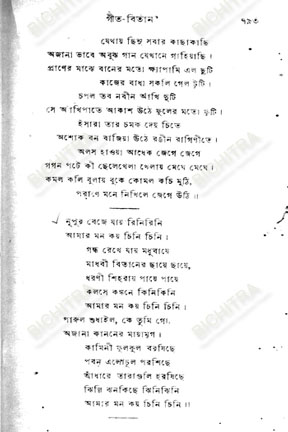 গীত-বিতান
৭৯৩
যেথায় ছিনু সবার কাছাকাছি
অজানা ভাবে অবুঝ গান যেখানে গাহিয়াছি।
প্রাণের মাঝে বানের মতো ক্ষ্যাপামি এল ছুটি
কাজের বাধা সকলি গেল টুটি।
চপল তব নবীন আঁখি দুটি
সে আঁখিপাতে আকাশ উঠে ফুলের মতো ফুটি।
ইসারা তার চমক দেয় চিতে
অশোক বন বাজিয়া উঠে রঙীন রাগিণীতে।
অলস হাওয়া আধেক জেগে জেগে
গগন পটে কী ছেলেখেলা খেলায় মেঘে মেঘে।
কমল কলি বুলায় বুকে কোমল কচি মুঠি,
পরাণে মনে নিখিলে জেগে উঠি ॥
নূপুর বেজে যায় রিনিরিনি
আমার মন কয় চিনি চিনি।
গন্ধ রেখে যায় মধুবায়ে
মাধবী বিতানের ছায়ে ছায়ে,
ধরণী শিহরায় পায়ে পায়ে
কলসে কঙ্কনে কিনিকিনি
আমার মন কয় চিনি চিনি।
পারুল শুধাইল, কে তুমি গো,
অজানা কাননের মায়ামৃগ।
কামিনী ফুলকুল বরষিছে
পবন এলোচুল পরশিছে
আঁধারে তারাগুলি হরষিছে
ঝিল্লি ঝনকিছে ঝিনিঝিনি
আমার মন কয় চিনি চিনি ॥
BICHITRA